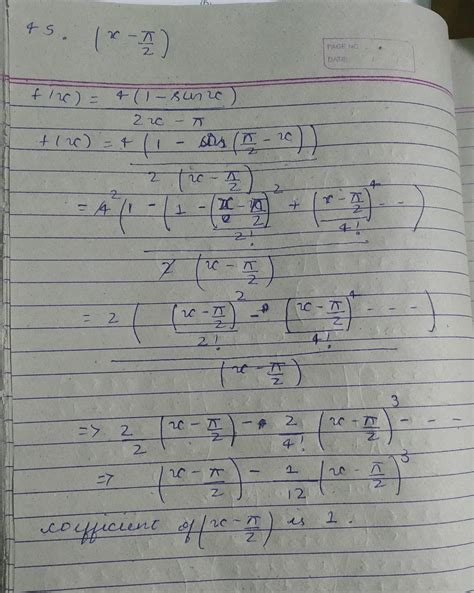 45. (x - π/2)
PAGE NO.
DATE:
f(x) = 4(1 - sinx) / 2x - π
f(x) = 4(1 - cos(π/2 - x)) / 2(x - π/2)
= 4² (1 - (1 - (x - π/2)²/2! + (x - π/2)⁴/4! - -) / 2 (x - π/2)
= 2 ( (x - π/2)²/2! - (x - π/2)⁴/4! - - - ) / (x - π/2)
=> 2/2 (x - π/2) - 2/4! (x - π/2)³ - - -
=> (x - π/2) - 1/12 (x - π/2)³
coefficient of (x - π/2) is 1.